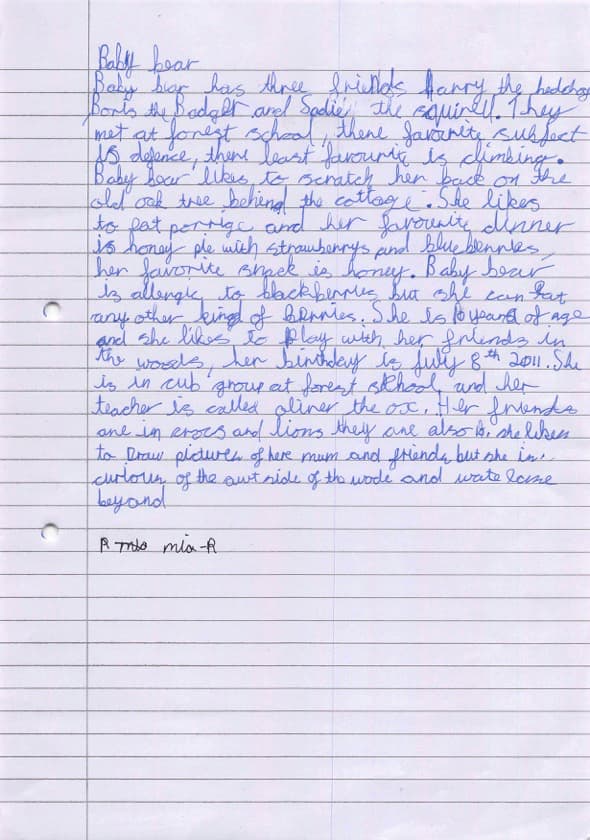 Baby bear
Baby bear has three friends Harry the hedghog
Boris the Badger and Sadie the squirell. They
met at forest school, there favourite subject
is defence, there least favourite is climbing.
Baby bear likes to scratch her back on the
old oak tree behind the cottage. She likes
to eat porrige and her favourite dinner
is honey pie with strawberrys and blueberries,
her favorite snack is honey. Baby bear
is allergic to blackberries but she can eat
any other kind of berries. She is 10 years of age
and she likes to play with her friends in
the woods, her birthday is july 8th 2011. She
is in cub group at forest school and her
teacher is called oliner the ox. Her friends
are in crocs and lions they are also 10. she likes
to Draw pictures of here mum and friends but she is
curious of the awt side of the wode and wate lase
beyond
R mia-R